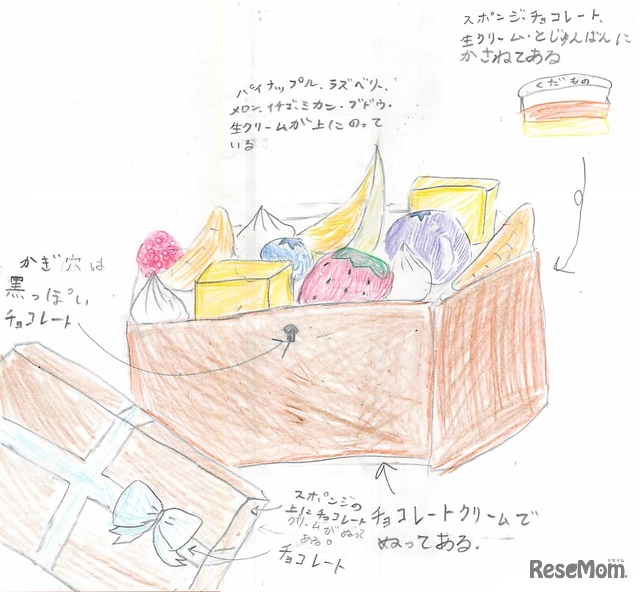 スポンジ・チョコレート、
生クリーム・とじゅんばんに
かさねてある
くだもの
パイナップル、ラズベリー、
メロン、イチゴ、ミカン・ブドウ・
生クリームが上にのって
いる
かぎ穴は
黒っぽい
チョコレート
スポンジの
上にチョコレート
クリームがぬって
ある。
チョコレート
チョコレートクリームで
ぬってある.
ReseMom.
リセマム